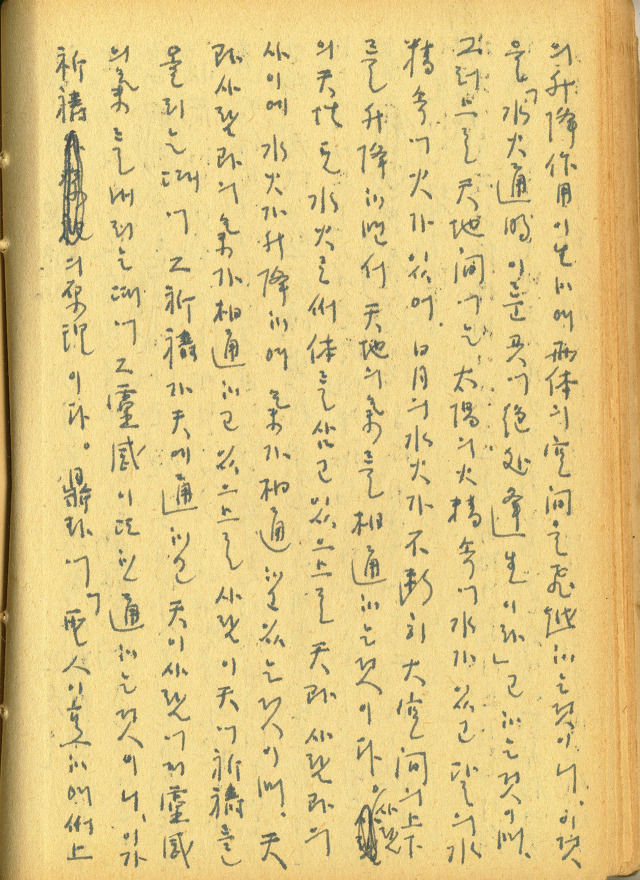 의 升降作用이 生하여 形体의 空間을 飛越하는 것이니, 이것
을「水火通明이 둔 곳에 絶処逢生이라」고 하는 것이며,
그러므로 天地間에는, 太陽의 火精 속에 水가 있고 달의 水
精 속에 火가 있어, 日月의 水火가 不断히 大空間의 上下
를 升降하면서 天地의 氣를 相通하는 것이다. 사람
의 天性도 水火로써 体를 삼고 있으므로 天과 사람과의
사이에 水火가 升降하여 氣가 相通하고 있는 것이며, 天
과 사람과의 氣가 相通하고 있으므로 사람이 天에 祈禱를
올리는 때에 그 祈禱가 天에 通하고 天이 사람에게 靈感
의 氣를 내리는 때에 그 靈感이 또한 通하는 것이니, 이가
祈禱의 原理이다。 鼎卦에「聖人이 亨하여써 上